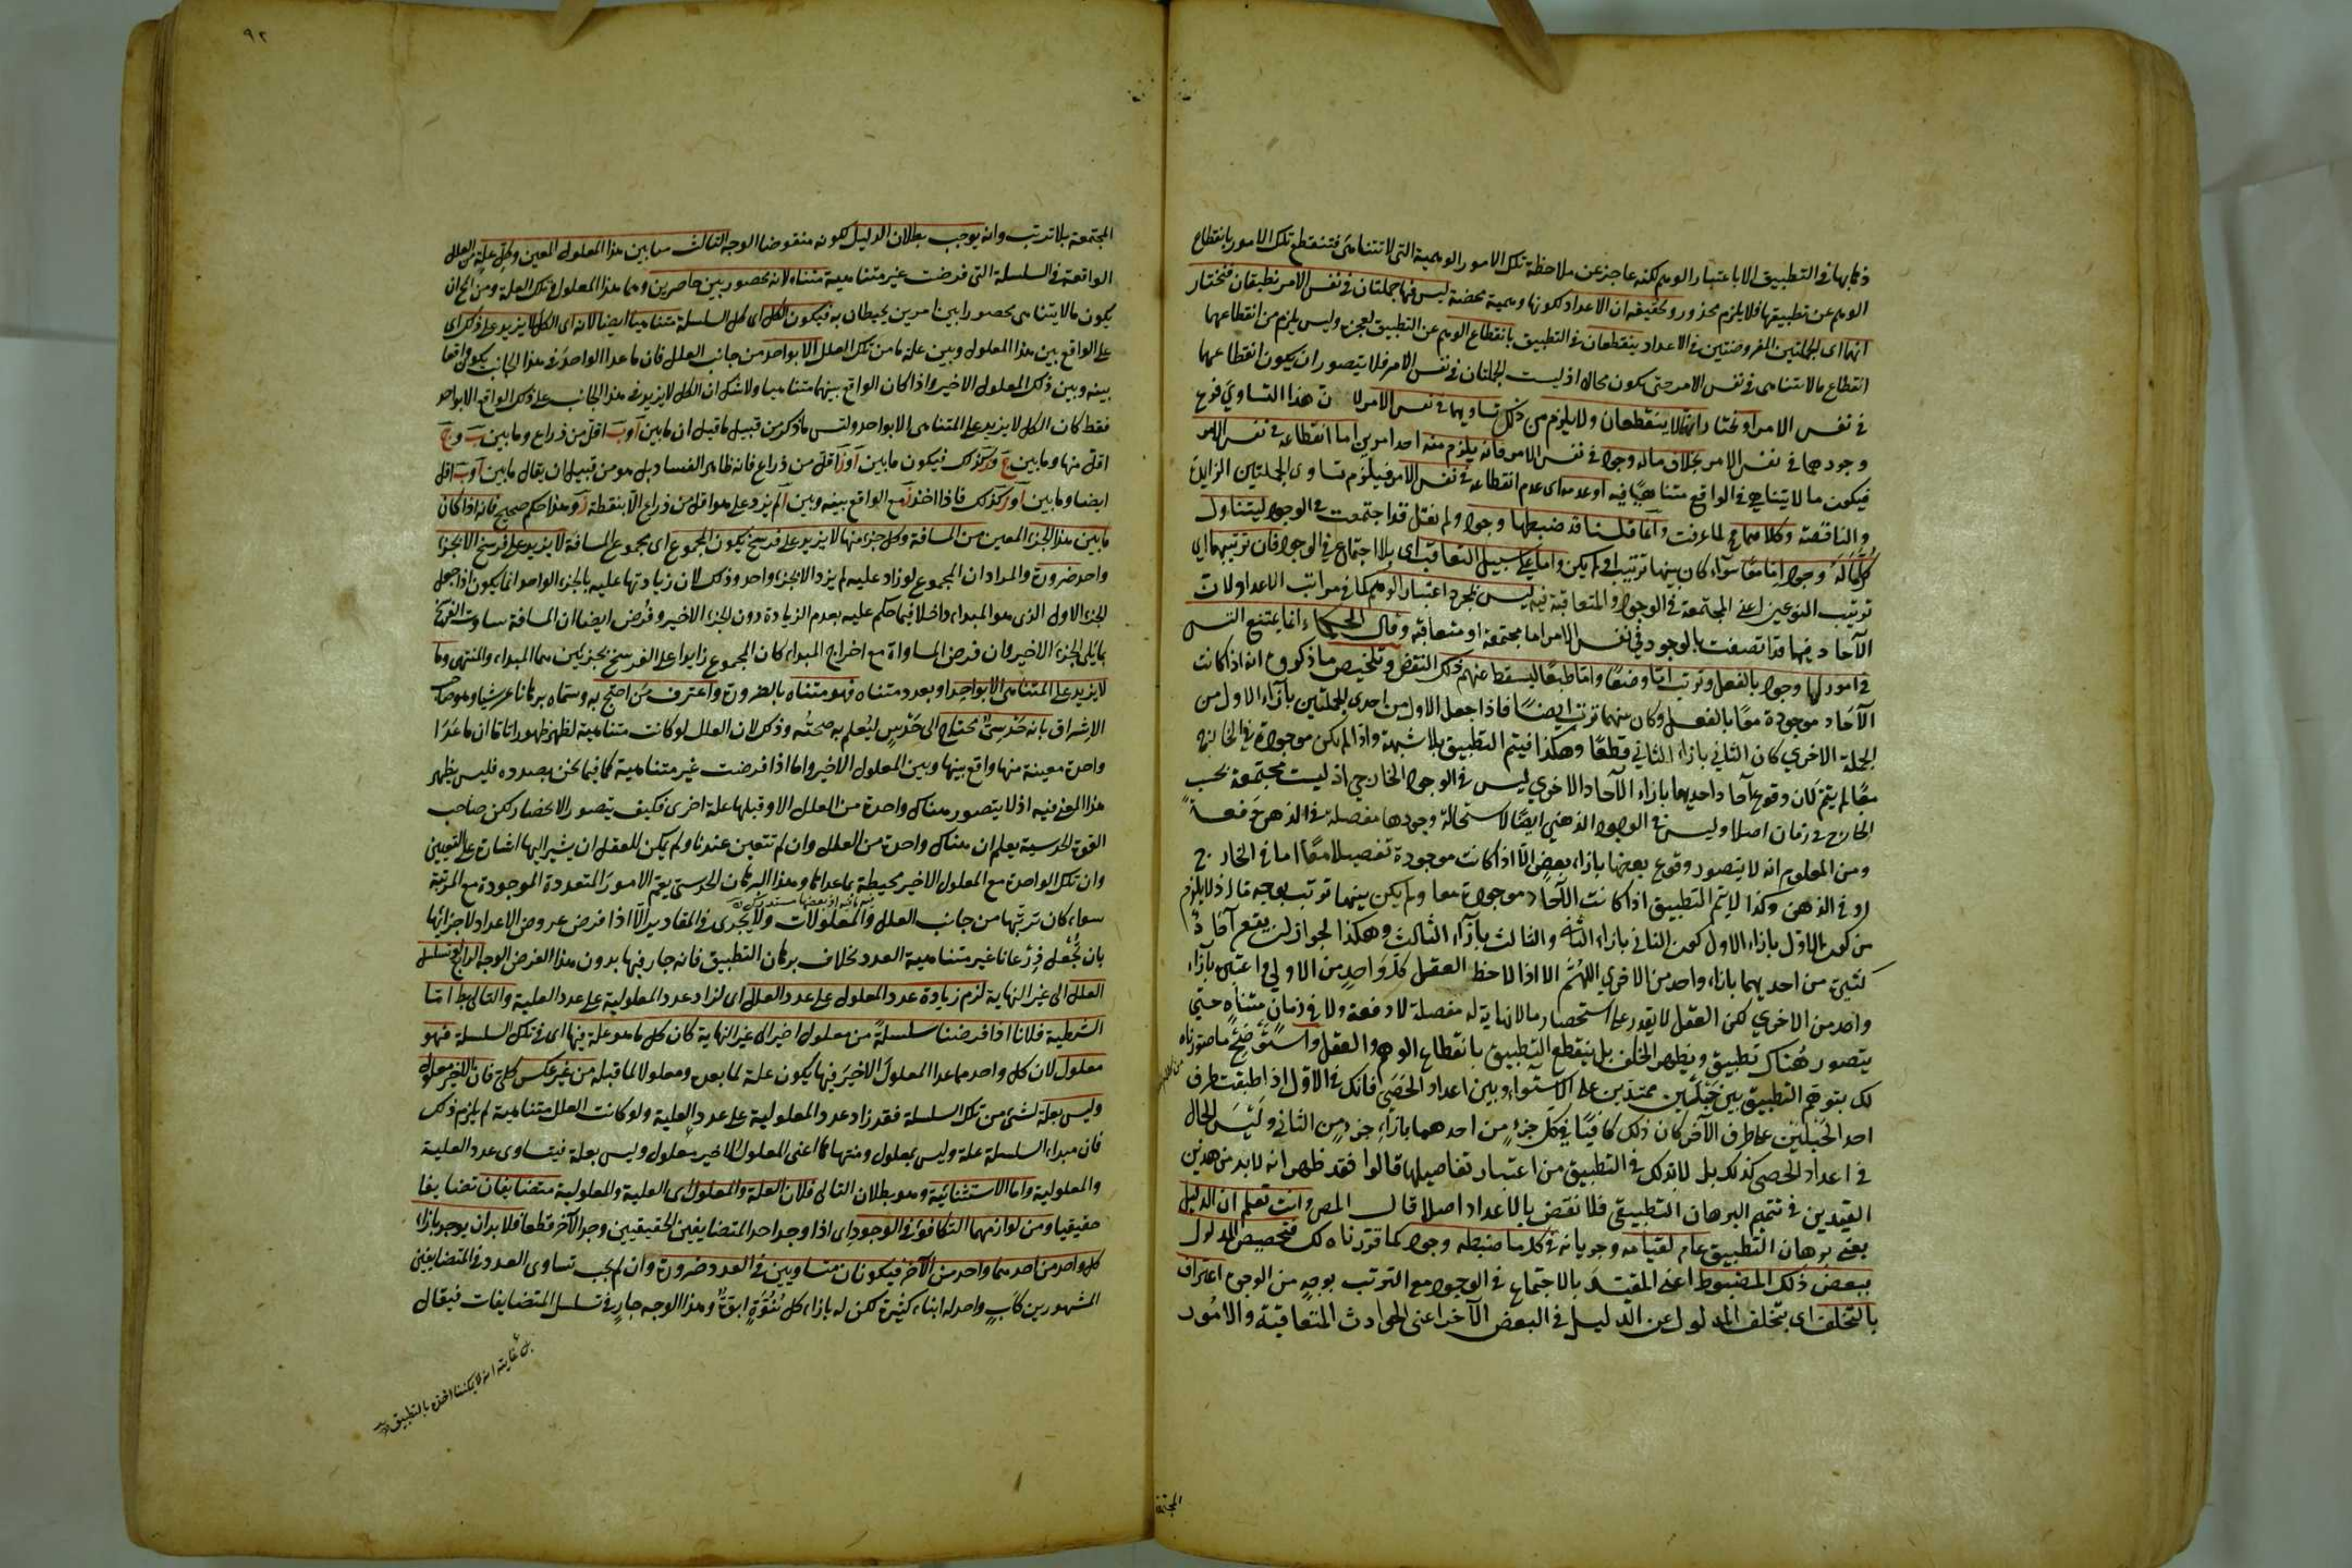 ذهابها في التطبيق الا باعتبار الوهم لكنه عاجز عن ملاحظة تلك الامور الوهمية التي لا تتناهى فتنقطع تلك الامور بانقطاع
الوهم عن تطبيقها فلا يلزم محذور وتحقيقه ان الاعداد لكونها وهمية محضة ليس فيها جملتان في نفس الامر تطبقان فنختار
انهما اى الجملتين المفروضتين في الاعداد ينقطعان في التطبيق بانقطاع الوهم عن التطبيق لعجزه وليس يلزم من انقطاعهما
انقطاع ما لا يتناهى في نفس الامر حتى يكون محالا اذ ليست الجملتان في نفس الامر فلا يتصور ان يكون انقطاعهما
في نفس الامر او نختار انهما لا ينقطعان ولا يلزم من ذلك تساويهما في نفس الامر لان هذا التساوي فرع
وجودهما في نفس الامر بخلاف ما له وجود في نفس الامر فانه يلزم منه احد امرين اما انقطاعه في نفس الامر
فيكون ما لا يتناهى في الواقع متناهيا فيه او عدمه اى عدم انقطاعه في نفس الامر فيلزم تساوى الجملتين الزايدة
والناقصة وكلاهما مح لما عرفت وانما قلنا قد ضبطها وجود ولم نقل قد اجتمعت في الوجود ليتناول
كل ماله وجود اما معا سواء كان بينهما ترتيب او لم يكن واما على سبيل التعاقب اى بلا اجتماع في الوجود فان ترتيبهما اي
ترتيب النوعين اعني المجتمعة في الوجود والمتعاقبة فيه ليس بمجرد اعتبار الوهم كما في مراتب الاعداد لان
الآحاد فيهما قد اتصفت بالوجود في نفس الامر اما مجتمعة او متعاقبة وقال الحكماء انما يمتنع التس
في امور لها وجود بالفعل وترتب اما وضعا واما طبعا ليسقط عنهم ذلك النقض وتلخيص ما ذكروه انه اذا كانت
الآحاد موجودة معا بالفعل وكان بينهما ترتب ايضا فاذا جعل الاول من احدى الجملتين بازاء الاول من
الجملة الاخرى كان الثاني بازاء الثاني قطعا وهكذا فيتم التطبيق بلا شبهة واذا لم يكن موجودة في الخارج
معا لم يتم لان وقوع آحاد احديهما بازاء الآحاد الاخرى ليس في الوجود الخارجي اذ ليست مجتمعة بحسب
الخارج في زمان اصلا وليس في الوجود الذهني ايضا لاستحالة وجودها مفصلة في الذهن دفعة
ومن المعلوم انه لا يتصور وقوع بعضها بازاء بعض الا اذا كانت موجودة تفصيلا معا اما في الخارج
او في الذهن وكذا لا يتم التطبيق اذا كانت الآحاد موجودة معا ولم يكن بينهما ترتب بوجه ما اذ لا يلزم
من كون الاول بازاء الاول كون الثاني بازاء الثانى والثالث بازاء الثالث وهكذا لجواز ان يقع آحاد
كثيرة من احديهما بازاء واحد من الاخرى اللهم الا اذا لاحظ العقل كل واحد من الاولى واعتبره بازاء
واحد من الاخرى لكن العقل لا يقدر على استحضار ما لا نهاية له مفصلة لا دفعة ولا في زمان متناه حتى
يتصور هناك تطبيق ويظهر الخلف بل ينقطع التطبيق بانقطاع الوهم والعقل واستوضح ما صورناه
لك بتوهم التطبيق بين حبلين ممتدين على الاستواء وبين اعداد الحصى فانك في الاول اذا طبقت طرف
احد الحبلين على طرف الآخر كان ذلك كافيا في كل جزء من احدهما بازاء جزء من الثاني وليس الحال
في اعداد الحصى كذلك بل لا بد لك في التطبيق من اعتبار تفاصيلها قالوا فقد ظهر انه لا بد من هذين
القيدين في تتميم البرهان التطبيقي فلا نقض بالاعداد اصلا قال المص وانت تعلم ان الدليل
يعني برهان التطبيق عام لقيامه وجريانه في كل ما ضبطه وجود كما قررناه لك فتخصيص المدلول
ببعض ذلك المضبوط اعني المقيد بالاجتماع في الوجود مع الترتب بوجه من الوجوه اعتراف
بالتخلف اى بتخلف المدلول عن الدليل في البعض الآخر اعني الحوادث المتعاقبة والامور
المجتمعة
٩٢
المجتمعة بلا ترتب وانه يوجب بطلان الدليل لكونه منقوضا الوجه الثالث ما بين هذا المعلول المعين وكل علة من العلل
الواقعة في السلسلة التي فرضت غير متناهية متناه لانه محصور بين حاصرين وهما هذا المعلول وتلك العلة ومن المح ان
يكون ما لا يتناهى محصورا بين امرين يحيطان به فيكون الكل اى كل السلسلة متناهيا ايضا لانه اى الكل لا يزيد على ذلك اى
على الواقع بين هذا المعلول وبين علة ما من تلك العلل الا بواحد من جانب العلل فان ما عدا الواحد في هذا الجانب يكون واقعا
بينه وبين ذلك المعلول الاخير واذا كان الواقع بينهما متناهيا ولا شك ان الكل لا يزيد في هذا الجانب على ذلك الواقع الا بواحد
فقط كان الكل لا يزيد على المتناهى الا بواحد وليس ما ذكر من قبيل ما قيل ان ما بين آ وب اقل من ذراع وما بين ب وج
اقل منها وما بين ج ود كذلك فيكون ما بين آ ود اقل من ذراع فانه ظاهر الفساد بل هو من قبيل ان يقال ما بين آ وب اقل
ايضا وما بين آ ود كذلك فاذا اخذ د مع الواقع بينه وبين آ لم يزد على ما هو اقل من ذراع الا بنقطة د وهذا حكم صحيح فانه اذا كان
ما بين هذا الجزء المعين من المسافة وكل جزء منها لا يزيد على فرسخ يكون المجموع اى مجموع المسافة لا يزيد على فرسخ الا بجزء
واحد ضرورة والمراد ان المجموع لو زاد عليه لم يزد الا بجزء واحد وذلك لان زيادتها عليه بالجزء الواحد انما يكون اذا جعل
الجزء الاول الذي هو المبداء داخلا فيما حكم عليه بعدم الزيادة دون الجزء الاخير وفرض ايضا ان المسافة ساوت الفرسخ
بما يلى الجزء الاخير وان فرض المساواة مع اخراج المبداء كان المجموع زايدا على الفرسخ بجزئين هما المبداء والمنتهى وما
لا يزيد على المتناهى الا بواحد او بعدد متناه فهو متناه بالضرورة واعترف من احتج به وسماه برهانا عرشيا وهو صاحب
الاشراق بانه حدسي يحتاج الى حدس ليعلم به صحته وذلك لان العلل لو كانت متناهية لظهر ظهورا تاما ان ما عدا
واحدة معينة منها واقع بينها وبين المعلول الاخير واما اذا فرضت غير متناهية كما فيما نحن بصدده فليس يظهر
هذا المعنى فيه اذ لا يتصور هناك واحدة من العلل الا وقبلها علة اخرى فكيف يتصور الانحصار لكن صاحب
القوة الحدسية يعلم ان هناك واحدة من العلل وان لم تتعين عندنا ولم يمكن للعقل ان يشير اليها اشارة على التعيين
وان تلك الواحدة مع المعلول الاخير محيطة بما عداها وهذا البرهان الحدسي يعم الامور المتعددة الموجودة مع المرتبة
سواء كان ترتبها من جانب العلل والمعلولات ولا يجرى في المقادير الا اذا فرض عروض الاعداد لاجزائها
بان تجعل ذرعانا غير متناهية العدد بخلاف برهان التطبيق فانه جار فيها بدون هذا الفرض الوجه الرابع لو تسلسل
العلل الى غير النهاية لزم زيادة عدد المعلول على عدد العلل اى لزاد عدد المعلولية على عدد العلية والتالي بط اما
الشرطية فلانا اذا فرضنا سلسلة من معلول اخير الى غير النهاية كان كل ما هو علة فيها اى في تلك السلسلة فهو
معلول لان كل واحد مما عدا المعلول الاخير فيها يكون علة لما بعده ومعلولا لما قبله من غير عكس كلى فان الاخير معلول
وليس بعلة لشئ من تلك السلسلة فقد زاد عدد المعلولية على عدد العلية ولو كانت العلل متناهية لم يلزم ذلك
فان مبداء السلسلة علة وليس بمعلول ومنتهاها اعنى المعلول الاخير معلول وليس بعلة فيتساوى عدد العلية
والمعلولية واما الاستثنائية وهو بطلان التالى فلان العلة والمعلول اى العلية والمعلولية متضايفان تضايفا
حقيقيا ومن لوازمهما التكافؤ في الوجود اى اذا وجد احد المتضايفين الحقيقيين وجد الآخر قطعا فلا بد ان يوجد بازاء
كل واحد من احدهما واحد من الآخر فيكونان متساويين في العدد ضرورة وان لم يجب تساوى العدد في المتضايفين
المشهورين كاب واحد له ابناء كثيرة لكن له بازاء كل بنوة ابوة وهذا الوجه جار في تسلسل المتضايفات فيقال
بل غايته انه لا يمكننا اخذه بالتطبيق